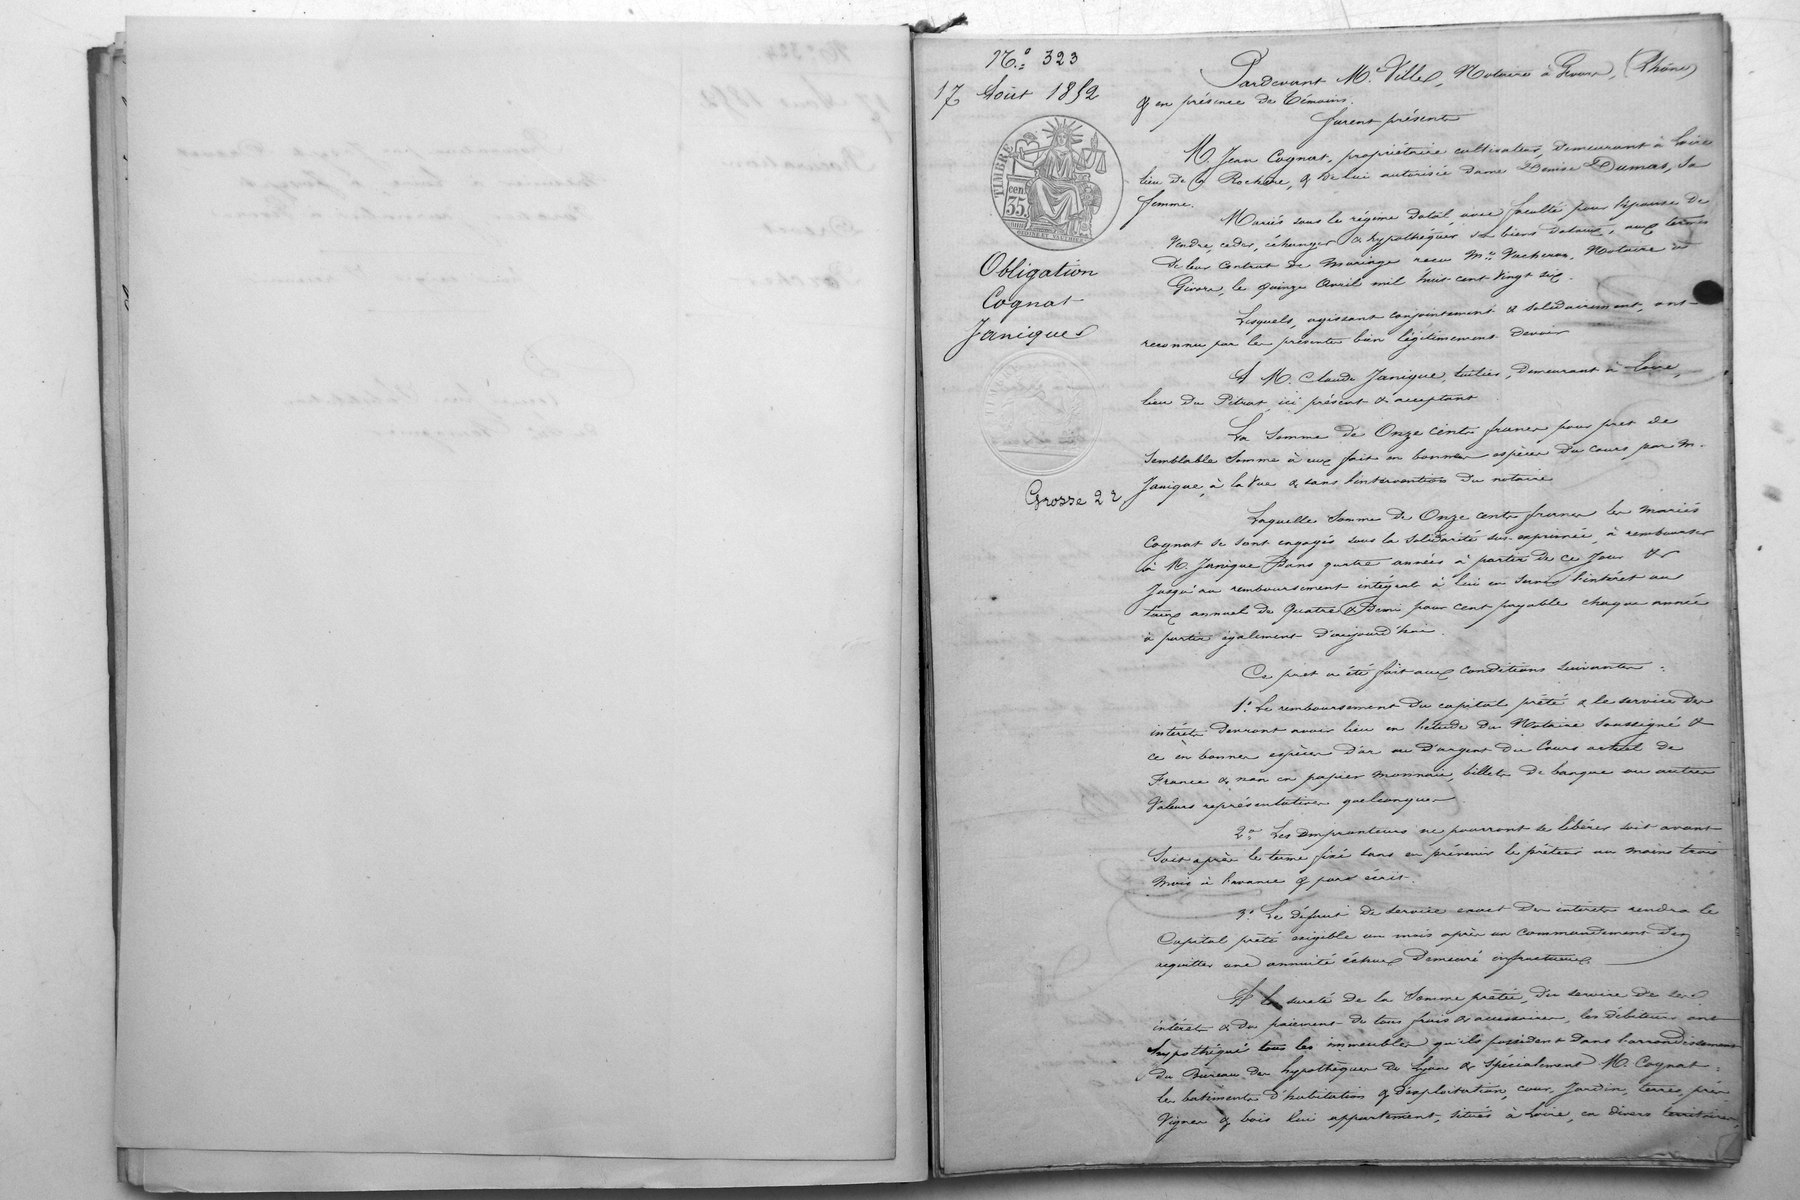 N.º 323
17 Août 1852
TIMBRE
35 cent
Obligation
Cognat
Janique
Grosse 2 r
Pardevant M.e Ville, Notaire à Givors, (Rhône)
& en présence de témoins.
furent présents
M. Jean Cognat, propriétaire cultivateur, demeurant à Loire
lieu de la Rochere, & de lui autorisée dame Denise Dumas, sa
femme.
Mariés sous le régime dotal avec faculté pour l'épouse de
Vendre, céder, échanger & hypothéquer ses biens dotaux, aux termes
de leur contrat de mariage reçu Me Vacheron, Notaire à
Givors, le quinze avril mil huit cent vingt six.
Lesquels, agissant conjointement & solidairement, ont
reconnu par les présentes bien légitimement devoir
A M. Claude Janique, tuilier, demeurant à Loire,
lieu du Pétrat, ici présent & acceptant
La somme de Onze cents francs pour prêt de
semblable somme à eux fait en bonnes espèces du cours par M.
Janique, à la vue & sans l'intervention du notaire
Laquelle somme de Onze cents francs les mariés
Cognat se sont engagés sous la solidarité sus-exprimée, à rembourser
à M. Janique dans quatre années à partir de ce jour & 
jusqu'au remboursement intégral à lui en servir l'intérêt au
taux annuel de quatre & demi pour cent payable chaque année
à partir également d'aujourd'hui.
Ce prêt a été fait aux conditions suivantes :
1º Le remboursement du capital prêté & le service des
intérêts devront avoir lieu en l'étude du Notaire soussigné &
ce en bonnes espèces d'or ou d'argent du cours actuel de
France & non en papier monnaie, billets de banque ou autres
Valeurs représentatives quelconques
2º Les emprunteurs ne pourront se libérer soit avant
soit après le terme fixé sans en prévenir le prêteur au moins trois
mois à l'avance & par écrit.
3º Le défaut de service exact des intérêts rendra le
Capital prêté exigible un mois après un commandement d'en
acquitter une annuité échue demeuré infructueux.
A la sureté de la somme prêtée, du service de ses
intérêts & du paiement de tous frais & accessoires, les débiteurs ont
hypothéqué tous les immeubles qu'ils possèdent dans l'arrondissement
du Bureau des hypothèques de Lyon & spécialement M. Cognat :
les batiments d'habitation & d'exploitation, cour, Jardin, terres, prés
Vignes & bois lui appartenant, situés à Loire, en divers territoires,